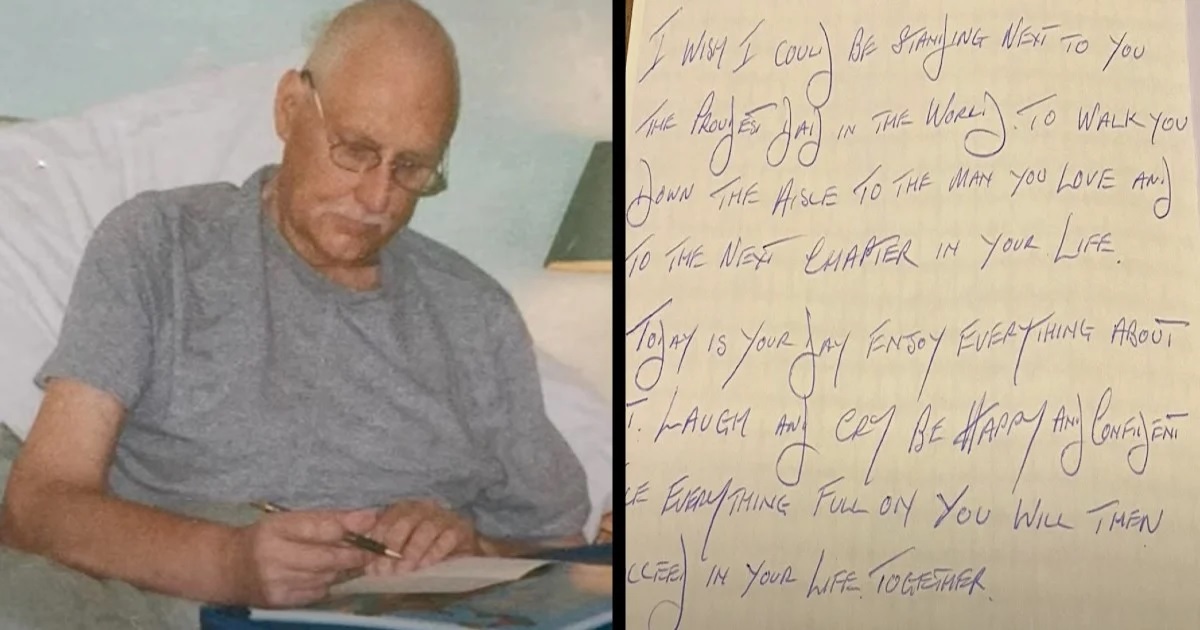 I WISH I COULD BE STANDING NEXT TO YOU
THE PROUDEST DAD IN THE WORLD. TO WALK YOU
DOWN THE AISLE TO THE MAN YOU LOVE AND
TO THE NEXT CHAPTER IN YOUR LIFE.
TODAY IS YOUR DAY ENJOY EVERYTHING ABOUT
T. LAUGH AND CRY BE HAPPY AND CONFIDENT
EVERYTHING FULL ON YOU WILL THEN
CCEED IN YOUR LIFE TOGETHER.